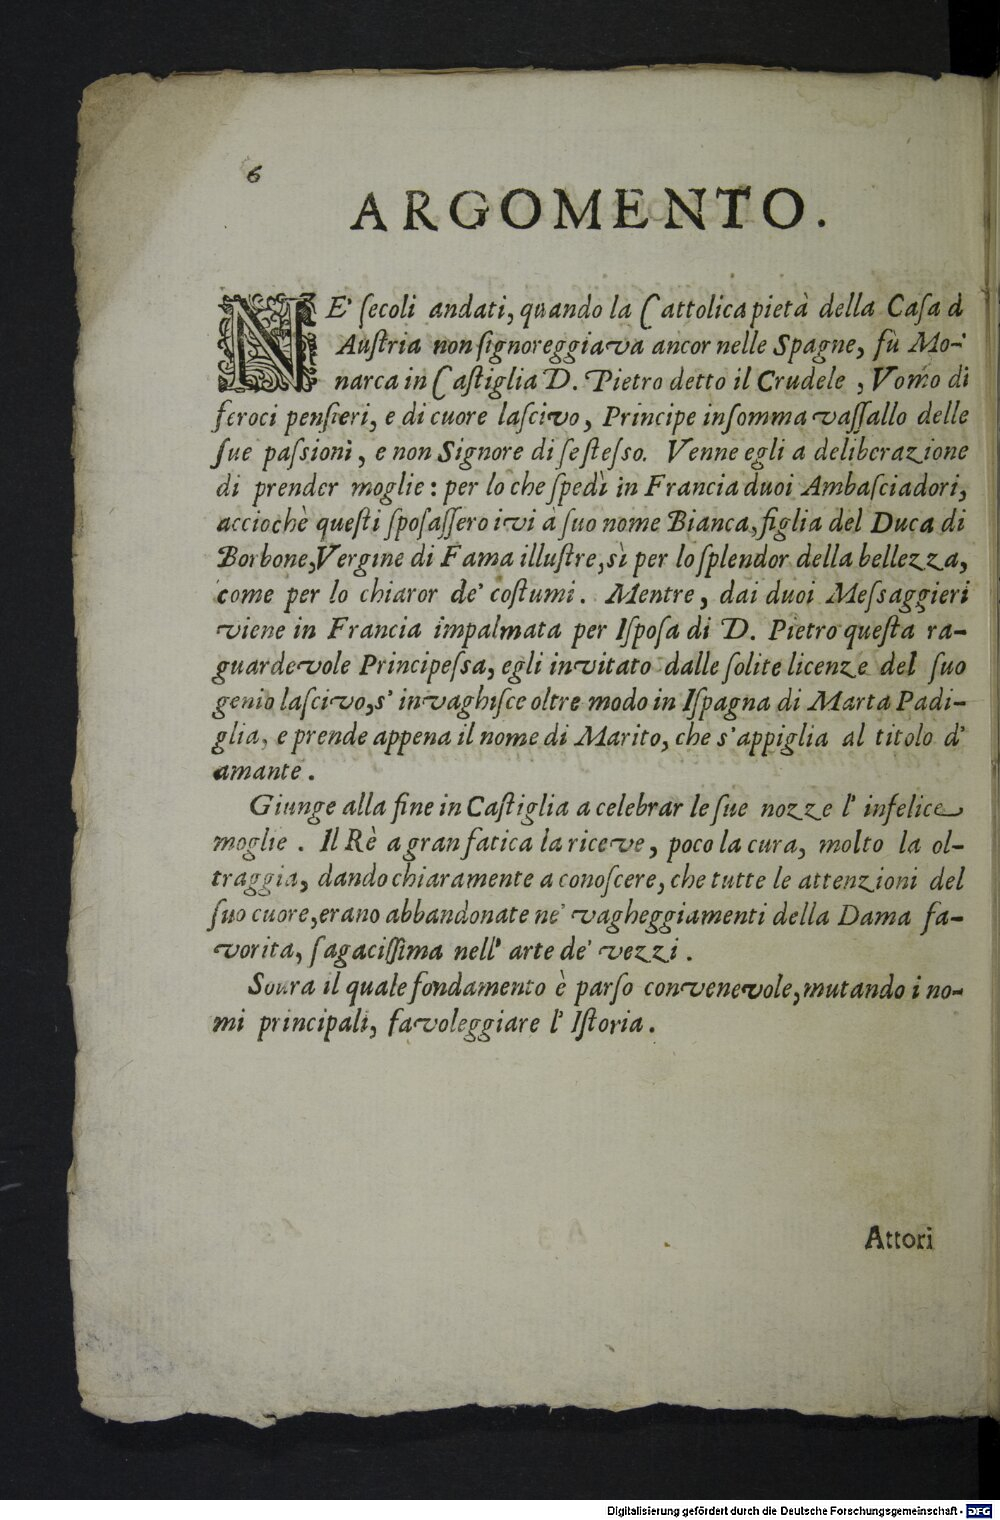 6
ARGOMENTO.
NE' ſecoli andati, quando la Cattolica pietà della Caſa d
Auſtria non ſignoreggiava ancor nelle Spagne, fù Mo-
narca in Caſtiglia D. Pietro detto il Crudele, Vomo di
feroci penſieri, e di cuore laſcivo, Principe inſomma vaſſallo delle
ſue paſsioni, e non Signore di ſe ſteſso. Venne egli a deliberazione
di prender moglie: per lo che ſpedì in Francia duoi Ambaſciadori,
acciochè queſti ſpoſaſſero ivi à ſuo nome Bianca, figlia del Duca di
Borbone, Vergine di Fama illuſtre, sì per lo ſplendor della bellezza,
come per lo chiaror de' coſtumi. Mentre, dai duoi Meſsaggieri
viene in Francia impalmata per Iſpoſa di D. Pietro queſta ra-
guardevole Principeſsa, egli invitato dalle ſolite licenze del ſuo
genio laſcivo, s' invaghiſce oltre modo in Iſpagna di Marta Padi-
glia, e prende appena il nome di Marito, che s'appiglia al titolo d'
amante.
Giunge alla fine in Caſtiglia a celebrar le ſue nozze l' infelice
moglie. Il Rè a gran fatica la riceve, poco la cura, molto la ol-
traggia, dando chiaramente a conoſcere, che tutte le attenzioni del
ſuo cuore, erano abbandonate ne' vagheggiamenti della Dama fa-
vorita, ſagaciſſima nell' arte de' vezzi.
Soura il quale fondamento è parſo convenevole, mutando i no-
mi principali, favoleggiare l' Iſtoria.
Attori
Digitalisierung gefördert durch die Deutsche Forschungsgemeinschaft - DFG